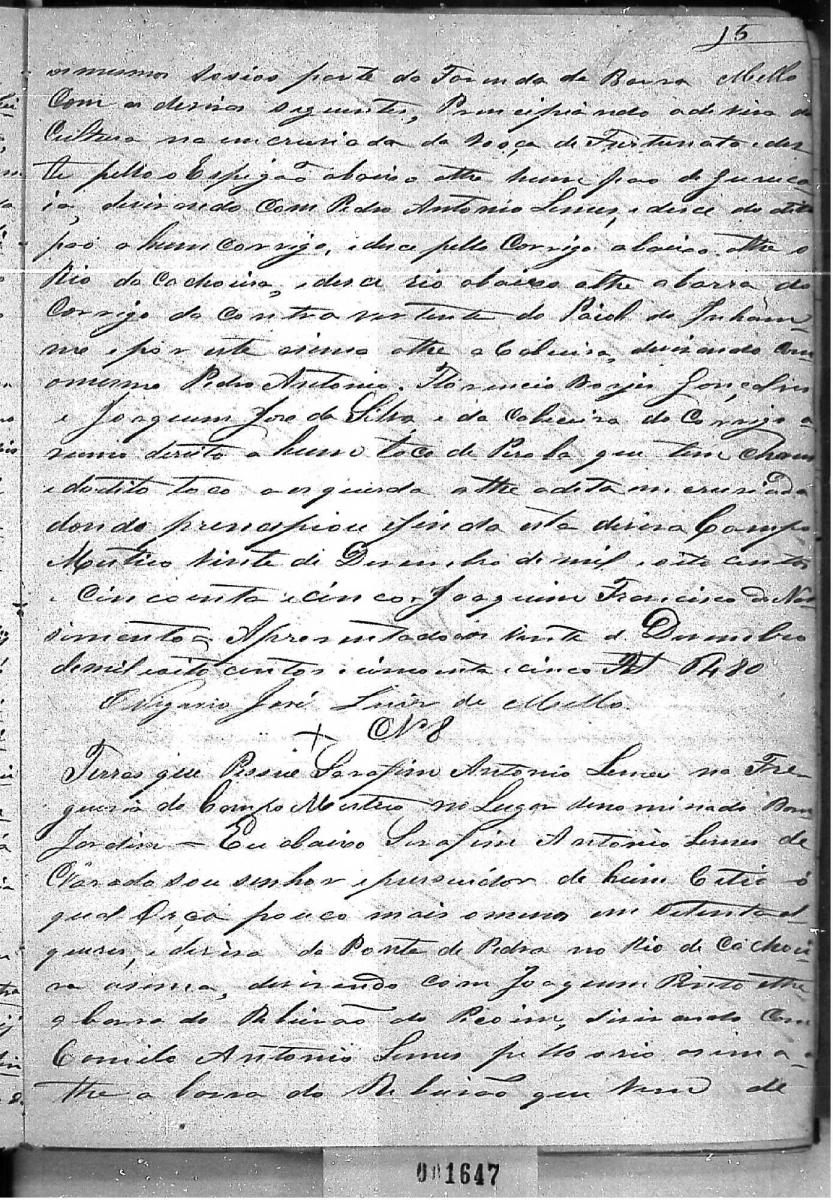 15
os mesmos sosios parte da Fasenda de Barra Mello
Com as devisas seguintes, Principiando a devisa da
Cultura na emcrusiada da Roça de Furtunato e des
te pello o Espigão abaixo athe hum pao de
devisando com Pedro Antonio Lemes, e desce do dito
pao a hum corrigo, e desce pello Corrigo abaixo athe o
Rio da Cachoeira, e desce rio abaixo athe a barra do
Corrigo da contra vertente do Paiol do Inham-
me e por este asima athe a Cabeseira, devisando com
o mesmo Pedro Antonio, Florencio Borges Gonçalves
e Joaquim Jose da Silva e da Cabeseira do Corrigo a
rumo direito a hum toco de Peroba que tem
e do dito toco a esquerda athe a dita emcrusiada
donde prencipiou e finda esta devisa Campo
Mestico vinte de Desembro de mil e oito centos
e Cincoenta e cinco, Joaquim Francisco do Nas
simento Apresentado aos vinte de Desembro
de mil e oito centos e cincoenta e cinco 6480
O Vigario José Luiz de Mello
+ Nº 8
Terras que Possue Serafim Antonio Lemes na Fre-
guesia do Campo Mestico no Lugar denominado Bom
Jardim — Eu abaixo Serafim Antonio Lemes de
sou senhor e pursuidor de hum Citio o
qual Orça pouco mais o menos em Setenta al
queires, e devisa da Ponte de Pedra no Rio de Cachoei
ra asima, devisando com Joaquim Pinto athe
a barra do Ribeirão do, devisando com
Camilo Antonio Lemes pello rio asima a-
the a barra do Ribeirão que vem de
001647